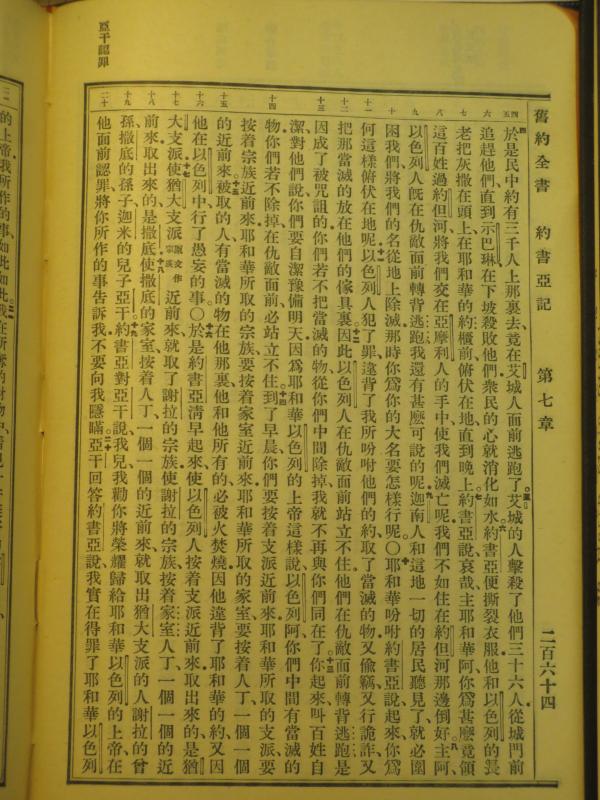 舊約全書 約書亞記 第七章 二百六十四
於是民中約有三千人上那裏去、竟在艾城人面前逃跑了。艾城的人擊殺了他們三十六人、從城門前
追趕他們直到示巴琳、在下坡殺敗他們。衆民的心就消化如水。約書亞便撕裂衣服、他和以色列的長
老把灰撒在頭上、在耶和華的約櫃前俯伏在地、直到晚上。約書亞說、哀哉、主耶和華阿、你爲甚麽竟領
這百姓過約但河、將我們交在亞摩利人的手中、使我們滅亡呢。我們不如住在約但河那邊倒好。主阿、
以色列人旣在仇敵面前轉背逃跑、我還有甚麽可說的呢。迦南人和這地一切的居民聽見了、就必圍
困我們、將我們的名從地上除滅、那時你爲你的大名要怎樣行呢。〇耶和華吩咐約書亞說、起來、你爲
何這樣俯伏在地呢。以色列人犯了罪、違背了我所吩咐他們的約、取了當滅的物、又偷竊、又行詭詐、又
把那當滅的放在他們的傢具裏。因此以色列人在仇敵面前站立不住、他們在仇敵面前轉背逃跑、是
因成了被咒詛的。你們若不把當滅的物、從你們中間除掉、我就不再與你們同在了。你起來、叫百姓自
潔、對他們說、你們要自潔、豫備明天、因爲耶和華以色列的上帝這樣說、以色列阿、你們中間有當滅的
物、你們若不除掉、在仇敵面前必站立不住。到了早晨、你們要按着支派近前來、耶和華所取的支派、要
按着宗族近前來、耶和華所取的宗族、要按着家室近前來、耶和華所取的家室、要按着人丁、一個一個
的近前來。被取的人有當滅的物在他那裏、他和他所有的、必被火焚燒、因他違背了耶和華的約、又因
他在以色列中行了愚妄的事。〇於是約書亞清早起來、使以色列人按着支派近前來、取出來的是猶
大支派、使猶大支派原文作宗族近前來、就取了謝拉的宗族、使謝拉的宗族、按着家室人丁、一個一個的近
前來、取出來的是撒底。使撒底的家室、按着人丁、一個一個的近前來、就取出猶大支派的人、謝拉的曾
孫、撒底的孫子、迦米的兒子亞干。約書亞對亞干說、我兒、我勸你將榮耀歸給耶和華以色列的上帝、在
他面前認罪、將你所作的事告訴我、不要向我隱瞞。亞干回答約書亞說、我實在得罪了耶和華以色列
亞干認罪
的上帝我所作的事如此如此